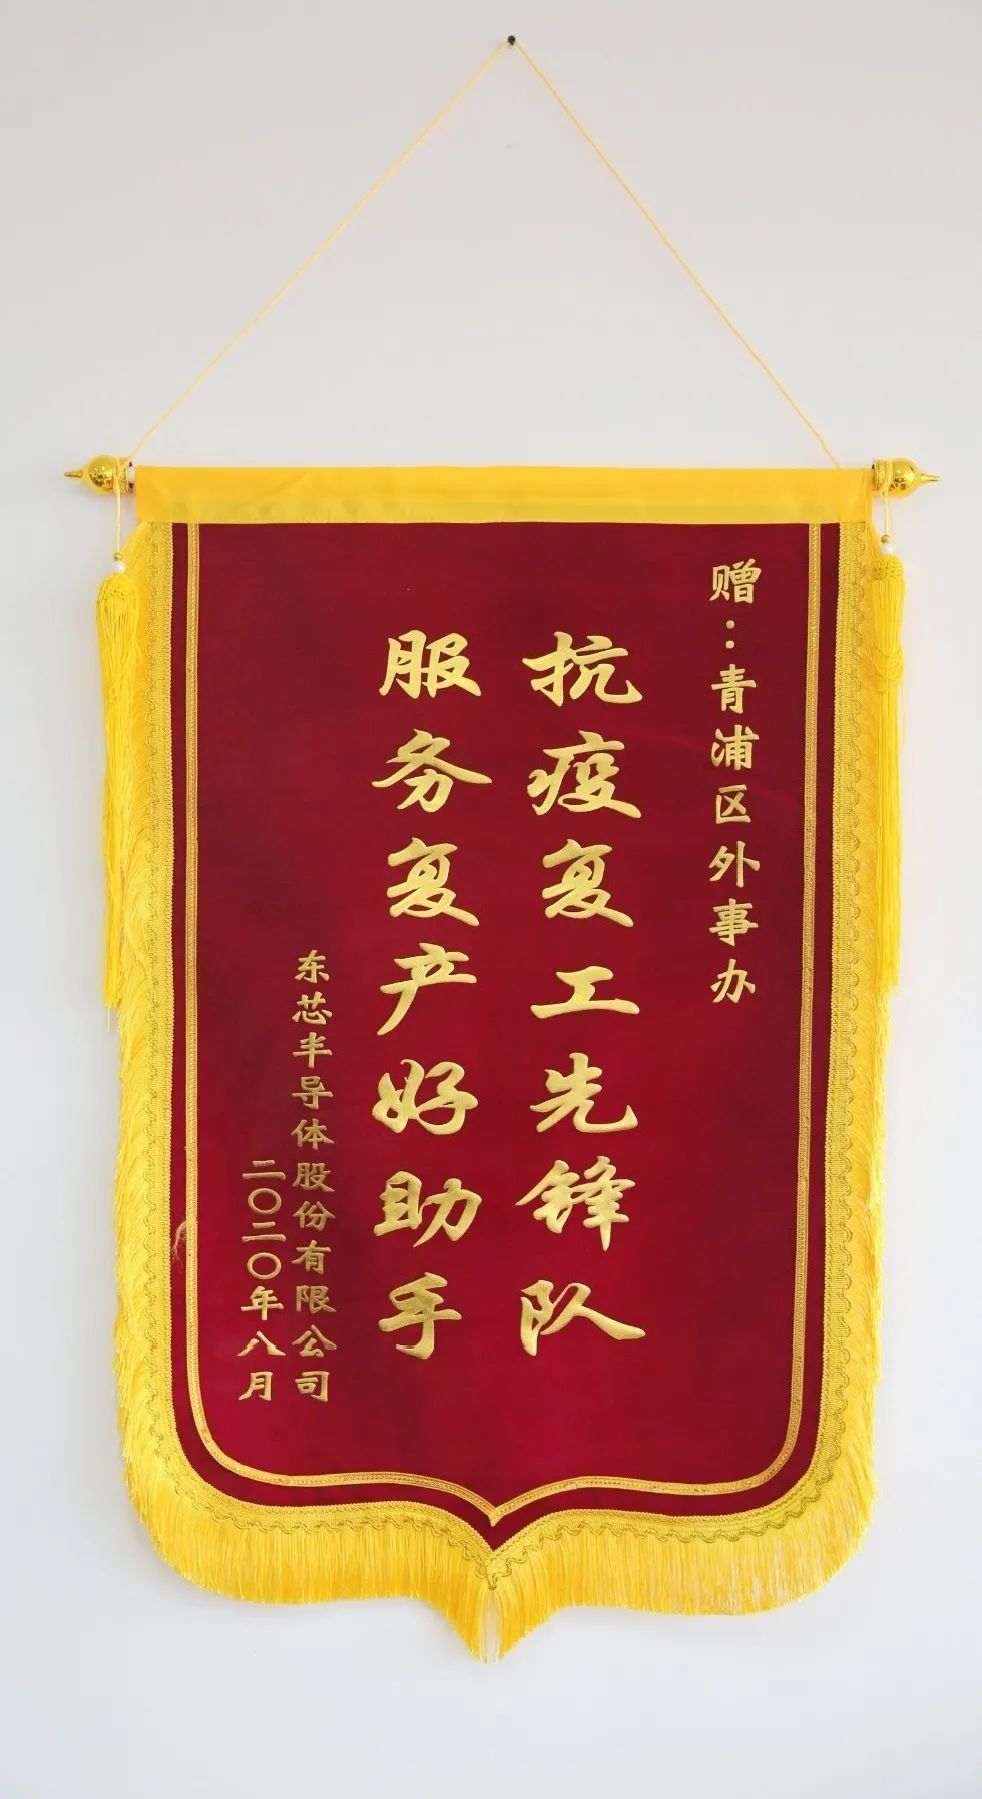 赠：青浦区外事办
抗疫复工先锋队
服务复产好助手
东芯半导体股份有限公司
二〇二〇年八月